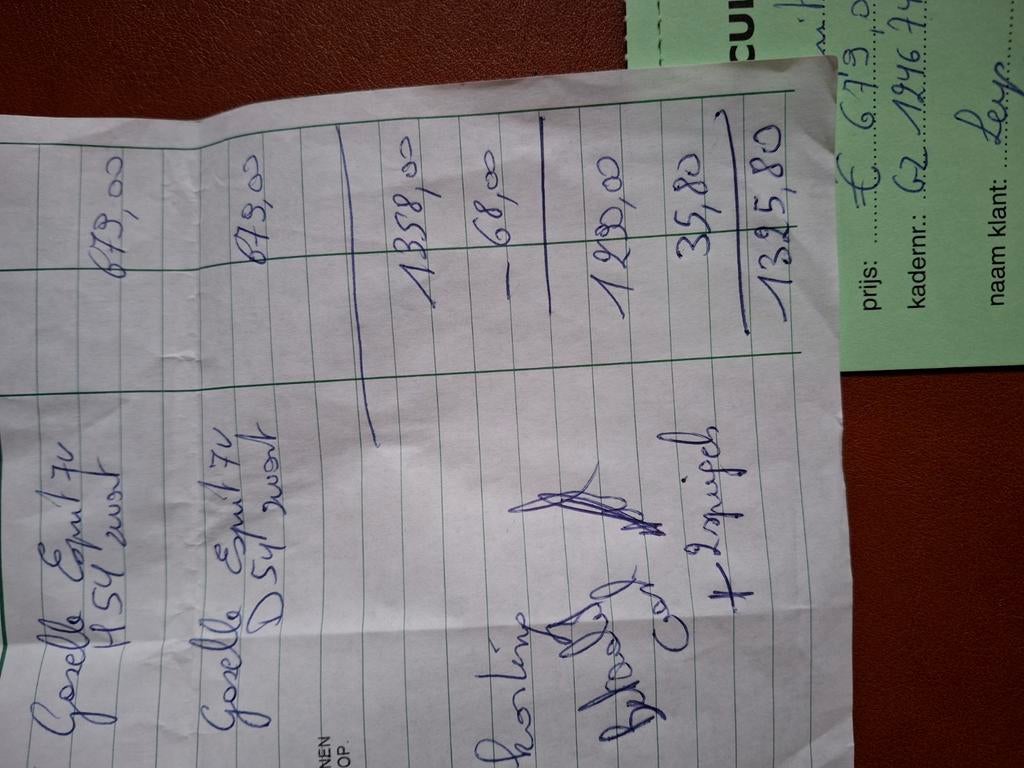 Gazelle Esprit 7v
H 54 zwart 679,00
Gazelle Esprit 7v
D 54 zwart 679,00
1358,00
korting — 68,00
1290,00
+ 2 spiegels 35,80
1325,80
NEN
OP.
prijs: € 679,0
kadernr.: GZ 124674
naam klant: